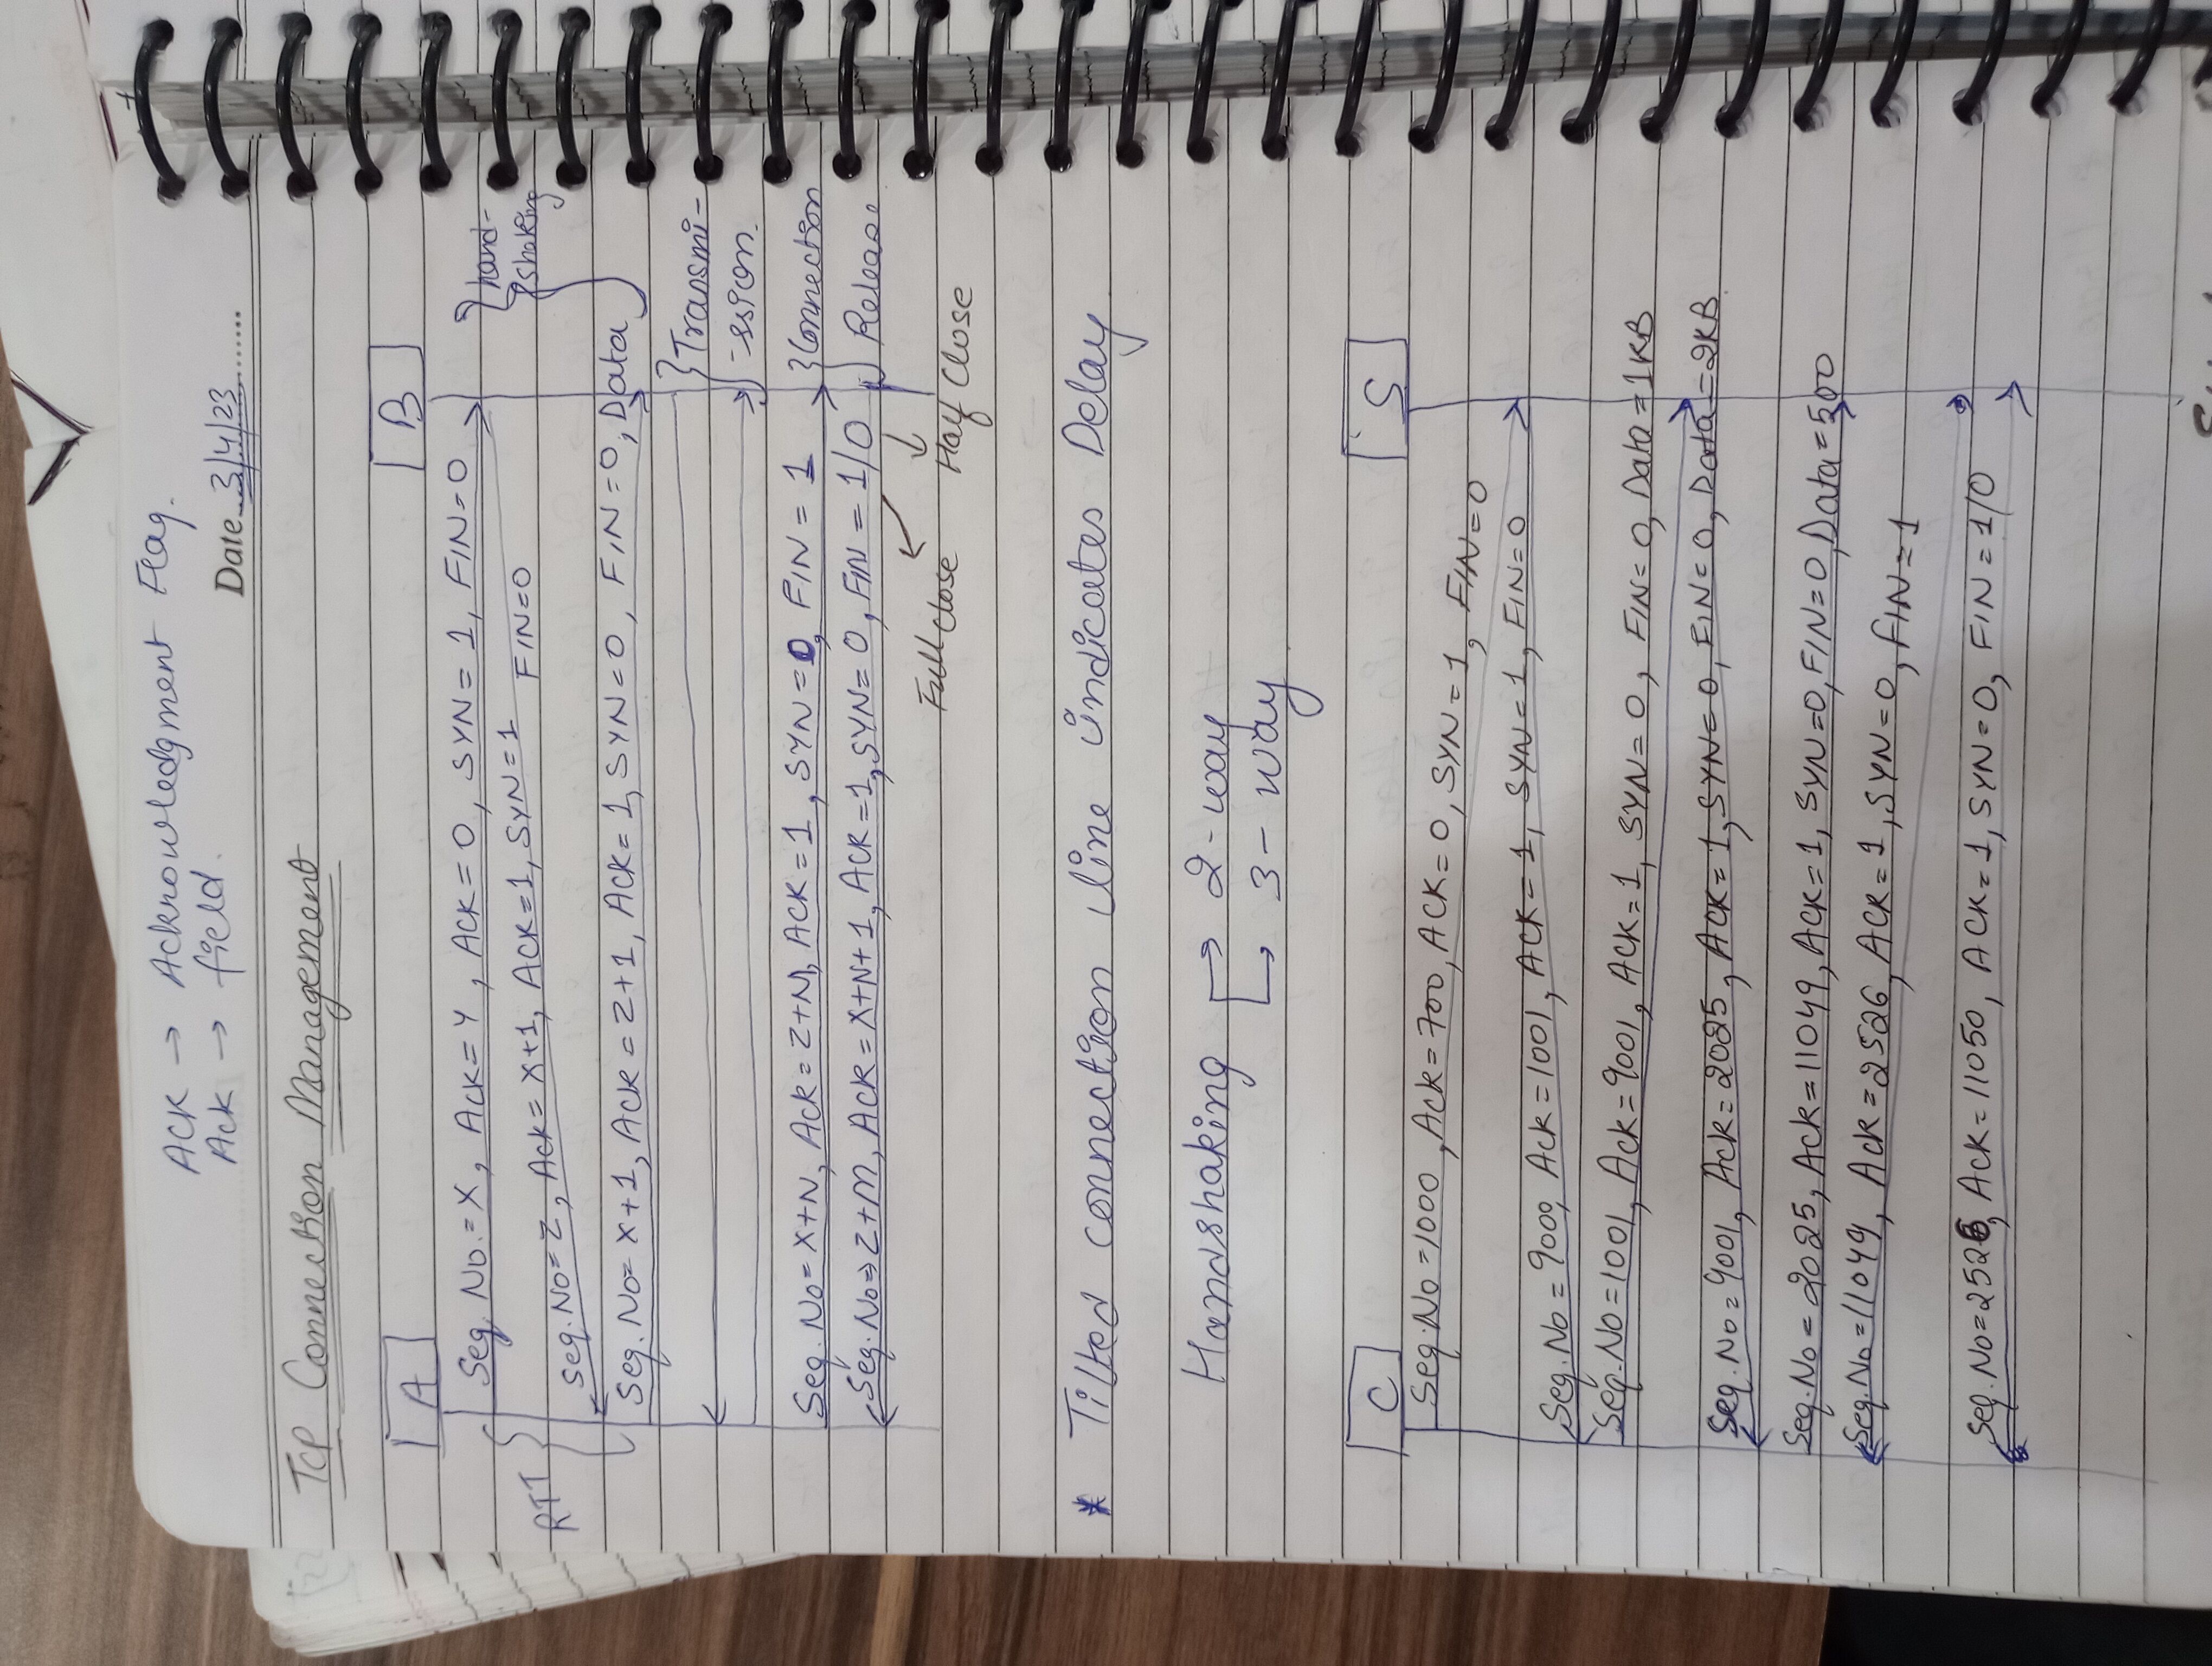 ACK → Acknowledgment Flag.
Ack → field.
Date 3/4/23
TCP Connection Management
A
B
Seq. No. = X, Ack = Y, ACK = 0, SYN = 1, FIN = 0
hand-
shaking
RTT
Seq. No = Z, Ack = X+1, ACK = 1, SYN = 1 FIN = 0
Seq. No = X+1, Ack = Z+1, ACK = 1, SYN = 0, FIN = 0, Data
Transmi-
-ssion.
Seq. No = X+N, Ack = Z+M, ACK = 1, SYN = 0, FIN = 1
Connection
Seq. No = Z+M, Ack = X+N+1, ACK = 1, SYN = 0, FIN = 1/0
Release
Full close
Half Close
* Tilted connection line indicates Delay
Handshaking → 2-way
→ 3-way
C
S
Seq. No = 1000, Ack = 700, ACK = 0, SYN = 1, FIN = 0
Seq. No = 9000, Ack = 1001, ACK = 1, SYN = 1, FIN = 0
Seq. No = 1001, Ack = 9001, ACK = 1, SYN = 0, FIN = 0, Data = 1KB
Seq. No = 9001, Ack = 2025, ACK = 1, SYN = 0, FIN = 0, Data = 2KB
Seq. No = 2025, Ack = 11049, ACK = 1, SYN = 0, FIN = 0, Data = 500
Seq. No = 11049, Ack = 2526, ACK = 1, SYN = 0, FIN = 1
Seq. No = 2526, Ack = 11050, ACK = 1, SYN = 0, FIN = 1/0